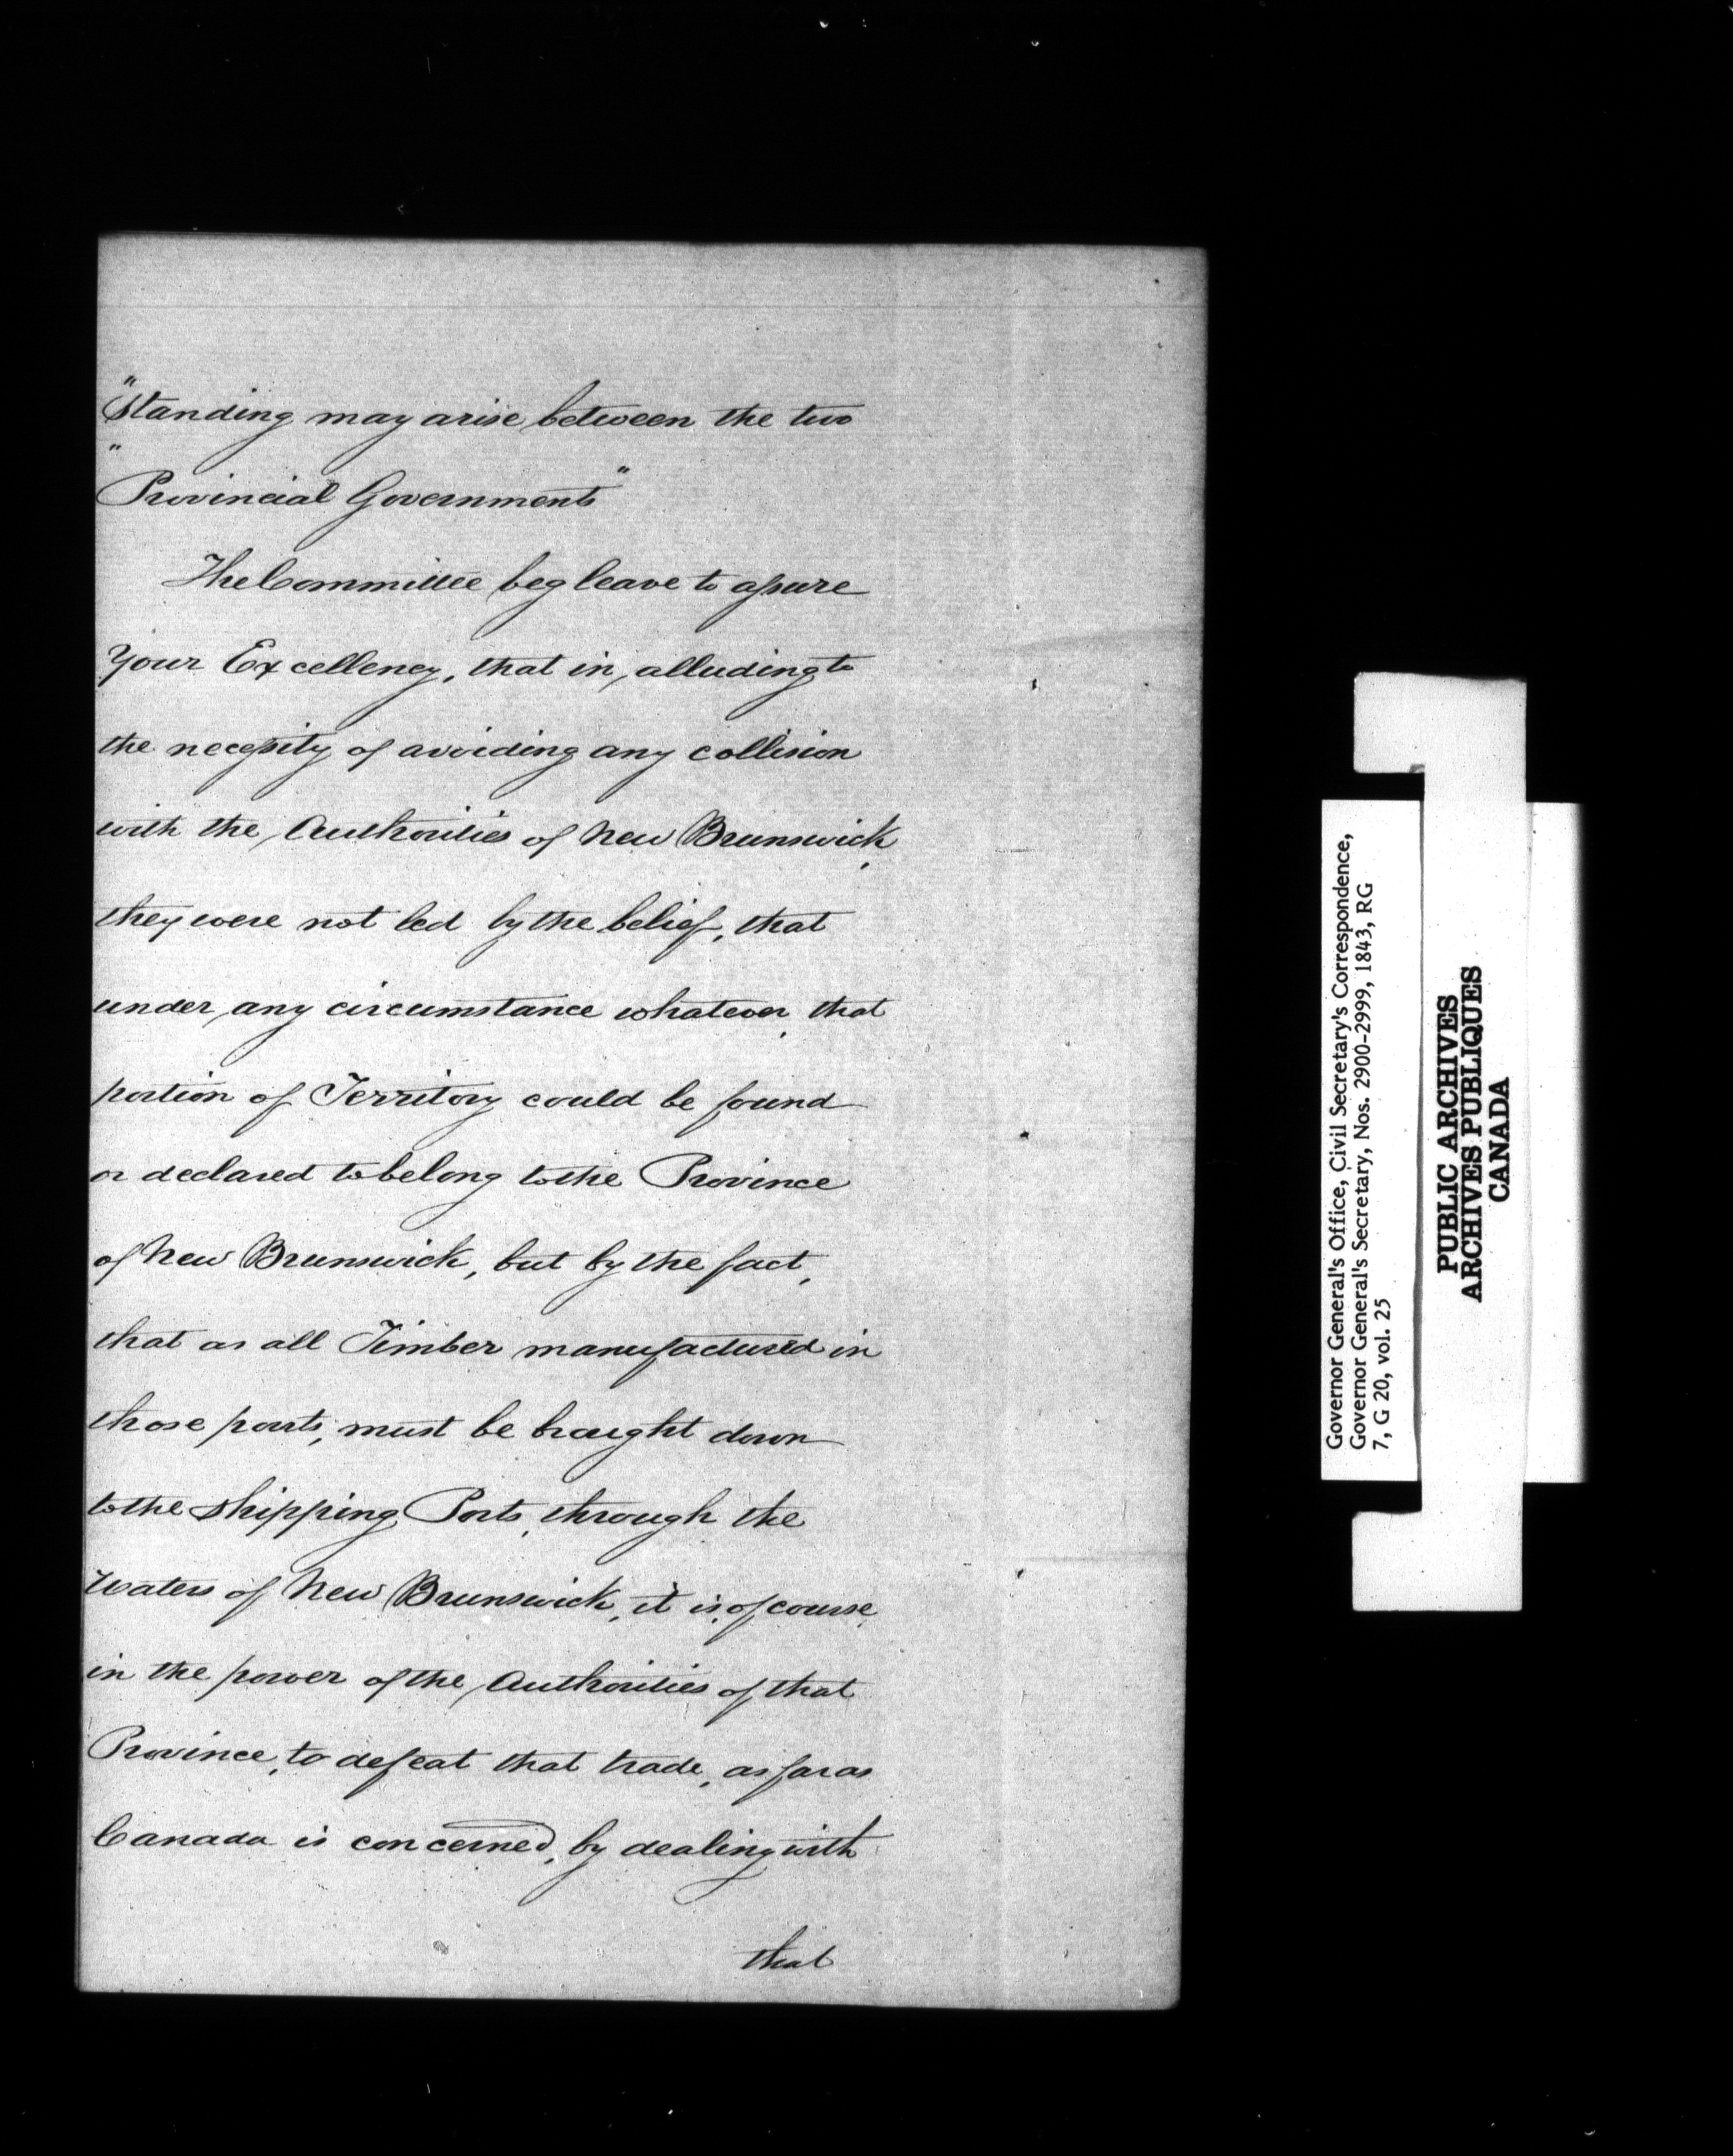 "standing may arise between the two
"Provincial Governments"
The Committee beg leave to assure
Your Excellency, that in alluding to
the necessity of avoiding any collision
with the Authorities of New Brunswick,
they were not led by the belief, that
under any circumstance whatever, that
portion of Territory could be found
or declared to belong to the Province
of New Brunswick, but by the fact,
that as all Timber manufactured in
those parts, must be brought down
to the shipping Ports, through the
Waters of New Brunswick, it is, of course,
in the power of the Authorities of that
Province, to defeat that trade, as far as
Canada is concerned, by dealing with
that
Governor General's Office, Civil Secretary's Correspondence,
Governor General's Secretary, Nos. 2900-2999, 1843, RG
7, G 20, vol. 25
PUBLIC ARCHIVES
ARCHIVES PUBLIQUES
CANADA